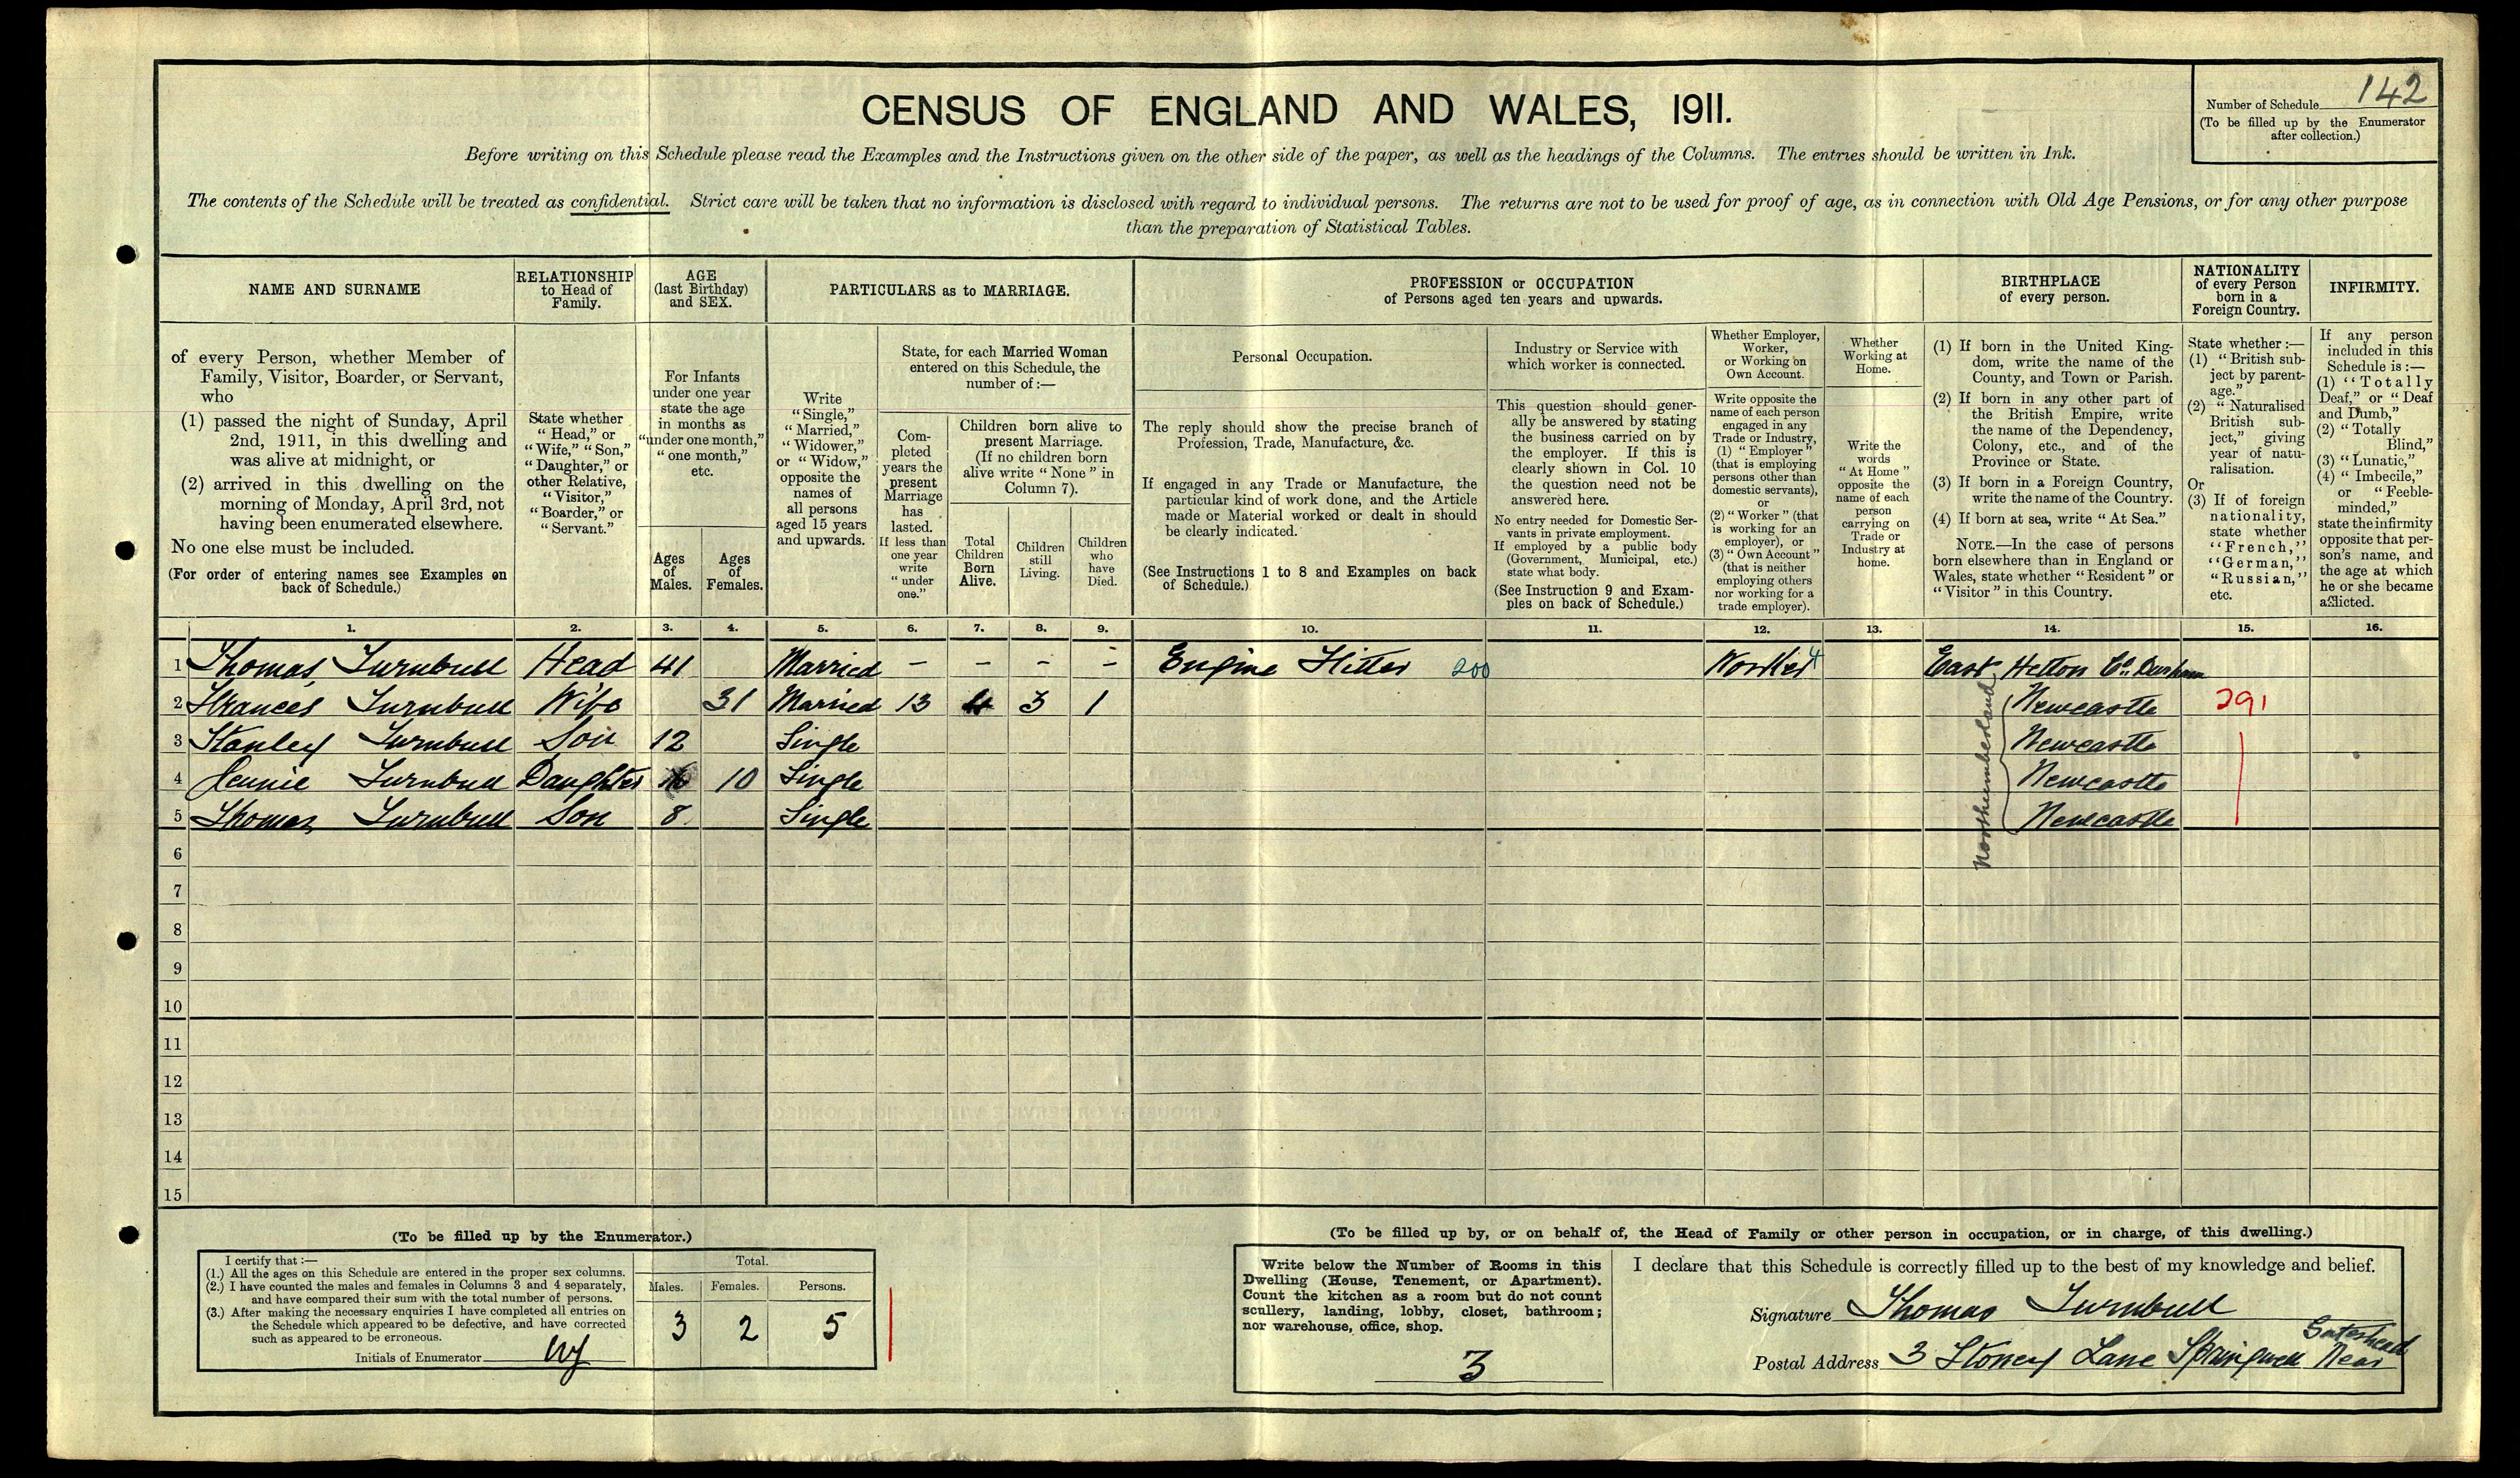 CENSUS OF ENGLAND AND WALES, 1911.
Number of Schedule 142
(To be filled up by the Enumerator
after collection.)
Before writing on this Schedule please read the Examples and the Instructions given on the other side of the paper, as well as the headings of the Columns. The entries should be written in Ink.
The contents of the Schedule will be treated as confidential. Strict care will be taken that no information is disclosed with regard to individual persons. The returns are not to be used for proof of age, as in connection with Old Age Pensions, or for any other purpose
than the preparation of Statistical Tables.
NAME AND SURNAME
RELATIONSHIP
to Head of
Family.
AGE
(last Birthday)
and SEX.
PARTICULARS as to MARRIAGE.
PROFESSION or OCCUPATION
of Persons aged ten years and upwards.
BIRTHPLACE
of every person.
NATIONALITY
of every Person
born in a
Foreign Country.
INFIRMITY.
of every Person, whether Member of
Family, Visitor, Boarder, or Servant,
who
(1) passed the night of Sunday, April
2nd, 1911, in this dwelling and
was alive at midnight, or
(2) arrived in this dwelling on the
morning of Monday, April 3rd, not
having been enumerated elsewhere.
No one else must be included.
(For order of entering names see Examples on
back of Schedule.)
State whether
"Head," or
"Wife," "Son,"
"Daughter," or
other Relative,
"Visitor,"
"Boarder," or
"Servant."
For Infants
under one year
state the age
in months as
"under one month,"
"one month,"
etc.
Ages
of
Males.
Ages
of
Females.
Write
"Single,"
"Married,"
"Widower,"
or "Widow,"
opposite the
names of
all persons
aged 15 years
and upwards.
State, for each Married Woman
entered on this Schedule, the
number of :—
Com-
pleted
years the
present
Marriage
has
lasted.
If less than
one year
write
"under
one."
Children born alive to
present Marriage.
(If no children born
alive write "None" in
Column 7).
Total
Children
Born
Alive.
Children
still
Living.
Children
who
have
Died.
Personal Occupation.
The reply should show the precise branch of
Profession, Trade, Manufacture, &c.
If engaged in any Trade or Manufacture, the
particular kind of work done, and the Article
made or Material worked or dealt in should
be clearly indicated.
(See Instructions 1 to 8 and Examples on back
of Schedule.)
Industry or Service with
which worker is connected.
This question should gener-
ally be answered by stating
the business carried on by
the employer. If this is
clearly shown in Col. 10
the question need not be
answered here.
No entry needed for Domestic Ser-
vants in private employment.
If employed by a public body
(Government, Municipal, etc.)
state what body.
(See Instruction 9 and Exam-
ples on back of Schedule.)
Whether Employer,
Worker,
or Working on
Own Account.
Write opposite the
name of each person
engaged in any
Trade or Industry,
(1) "Employer"
(that is employing
persons other than
domestic servants),
or
(2) "Worker" (that
is working for an
employer), or
(3) "Own Account"
(that is neither
employing others
nor working for a
trade employer).
Whether
Working at
Home.
Write the
words
"At Home"
opposite the
name of each
person
carrying on
Trade or
Industry at
home.
(1) If born in the United King-
dom, write the name of the
County, and Town or Parish.
(2) If born in any other part of
the British Empire, write
the name of the Dependency,
Colony, etc., and of the
Province or State.
(3) If born in a Foreign Country,
write the name of the Country.
(4) If born at sea, write "At Sea."
NOTE.—In the case of persons
born elsewhere than in England or
Wales, state whether "Resident" or
"Visitor" in this Country.
State whether :—
(1) "British sub-
ject by parent-
age."
(2) "Naturalised
British sub-
ject," giving
year of natu-
ralisation.
Or
(3) If of foreign
nationality,
state whether
"French,"
"German,"
"Russian,"
etc.
If any person
included in this
Schedule is :—
(1) "Totally
Deaf," or "Deaf
and Dumb,"
(2) "Totally
Blind,"
(3) "Lunatic,"
(4) "Imbecile,"
or "Feeble-
minded,"
state the infirmity
opposite that per-
son's name, and
the age at which
he or she became
afflicted.
1. 2. 3. 4. 5. 6. 7. 8. 9. 10. 11. 12. 13. 14. 15. 16.
1 Thomas Turnbull Head 41 Married – – – – Engine Fitter 200 Worker 4 East Hetton Co. Durham
2 Frances Turnbull Wife 31 Married 13 4 3 1 Newcastle 291
3 Stanley Turnbull Son 12 Single Newcastle
4 Jennie Turnbull Daughter 10 Single Newcastle
5 Thomas Turnbull Son 8 Single Newcastle
Northumberland
6
7
8
9
10
11
12
13
14
15
(To be filled up by the Enumerator.)
I certify that :—
(1.) All the ages on this Schedule are entered in the proper sex columns.
(2.) I have counted the males and females in Columns 3 and 4 separately,
and have compared their sum with the total number of persons.
(3.) After making the necessary enquiries I have completed all entries on
the Schedule which appeared to be defective, and have corrected
such as appeared to be erroneous.
Initials of Enumerator
Total.
Males. Females. Persons.
3 2 5
(To be filled up by, or on behalf of, the Head of Family or other person in occupation, or in charge, of this dwelling.)
Write below the Number of Rooms in this
Dwelling (House, Tenement, or Apartment).
Count the kitchen as a room but do not count
scullery, landing, lobby, closet, bathroom;
nor warehouse, office, shop.
3
I declare that this Schedule is correctly filled up to the best of my knowledge and belief.
Signature Thomas Turnbull
Postal Address 3 Stoney Lane Springwell Near Gateshead